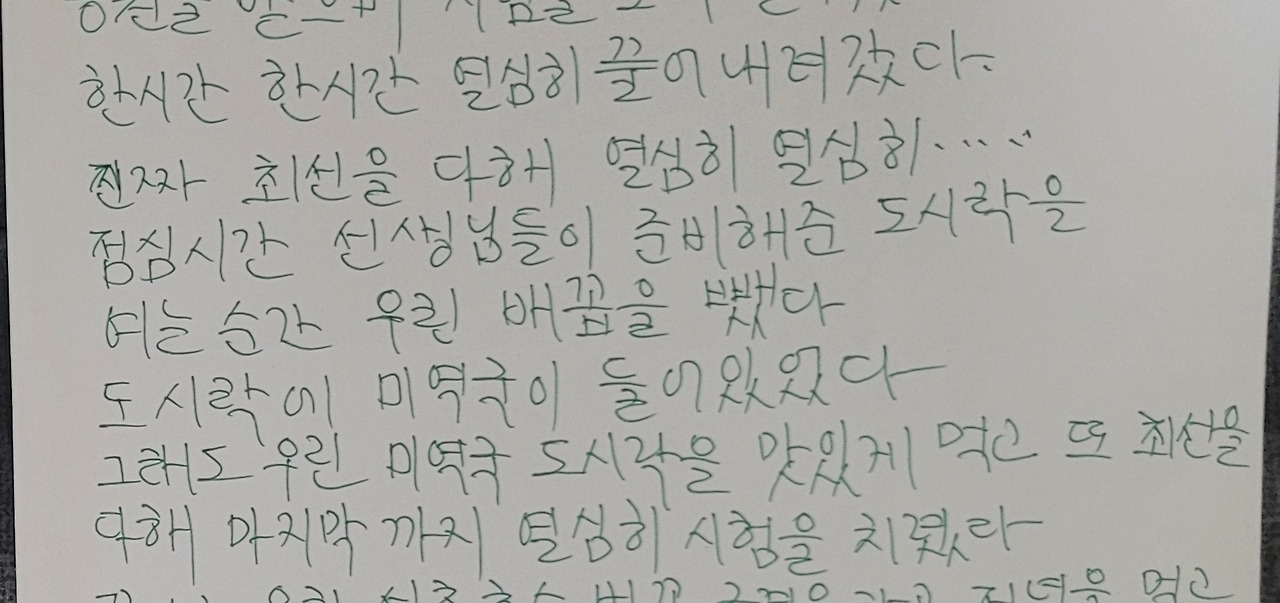 한시간 한시간 열심히 풀어내려갔다.
찐자 최선을 다해 열심히 열심히.....
점심시간 선생님들이 준비해준 도시락을
여는순간 우린 배꼽을 뺐다
도시락에 미역국이 들어있었다
그래도 우린 미역국 도시락을 맛있게 먹고 또 최선을
다해 마지막까지 열심히 시험을 치뤘다
먹고